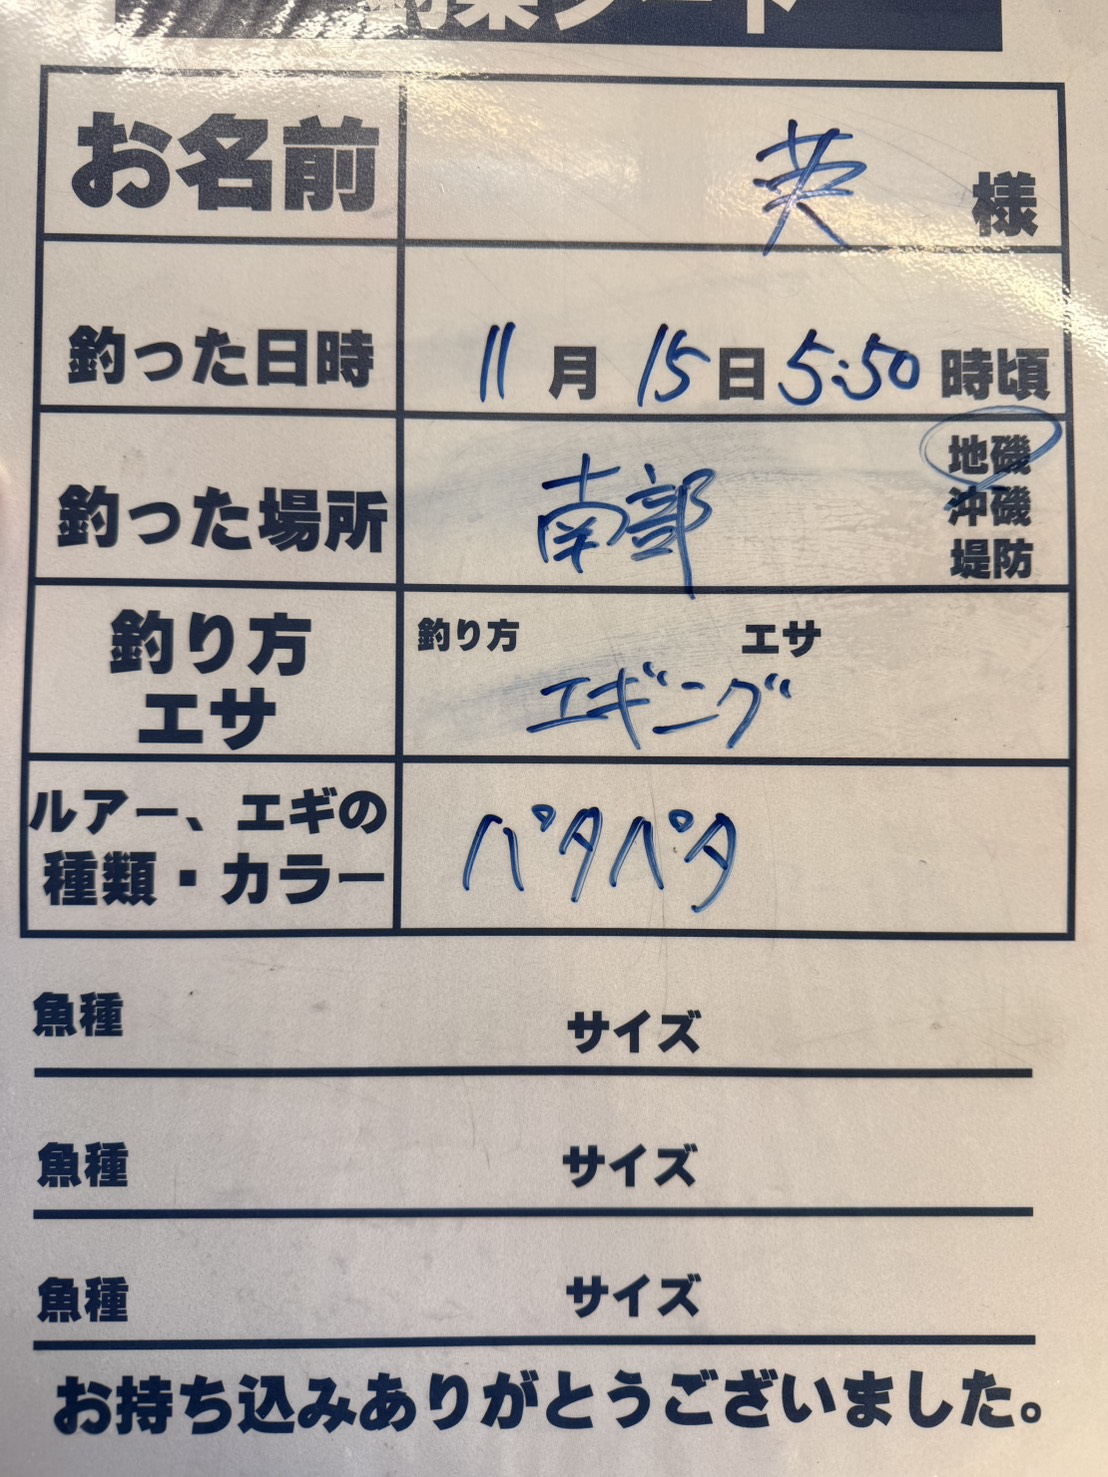 釣果シート
お名前 英 様
釣った日時 11月15日5:50時頃
釣った場所 南部 地磯
沖磯
堤防
釣り方
エサ
釣り方 エサ
エギング
ルアー、エギの
種類・カラー
パタパタ
魚種 サイズ
魚種 サイズ
魚種 サイズ
お持ち込みありがとうございました。